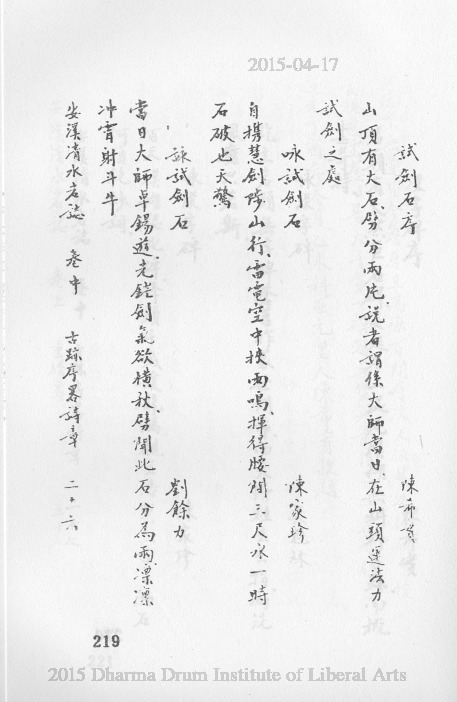 2015-04-17
試劍石序 陳希實
山頂有大石、劈分兩片、說者謂係大師當日、在山頭運法力
試劍之處
咏試劍石 陳家珍
自携慧劍陟山行、雷電空中挾雨鳴、揮得腰間三尺水一時
石破也天驚
詠試劍石 劉餘力
當日大師卓錫遊、光鋩劍氣欲橫秋、劈開此石分為兩、凛凛
冲霄射斗牛
安溪清水岩誌 卷中 古跡序畧詩章 二十六
219
2015 Dharma Drum Institute of Liberal Arts